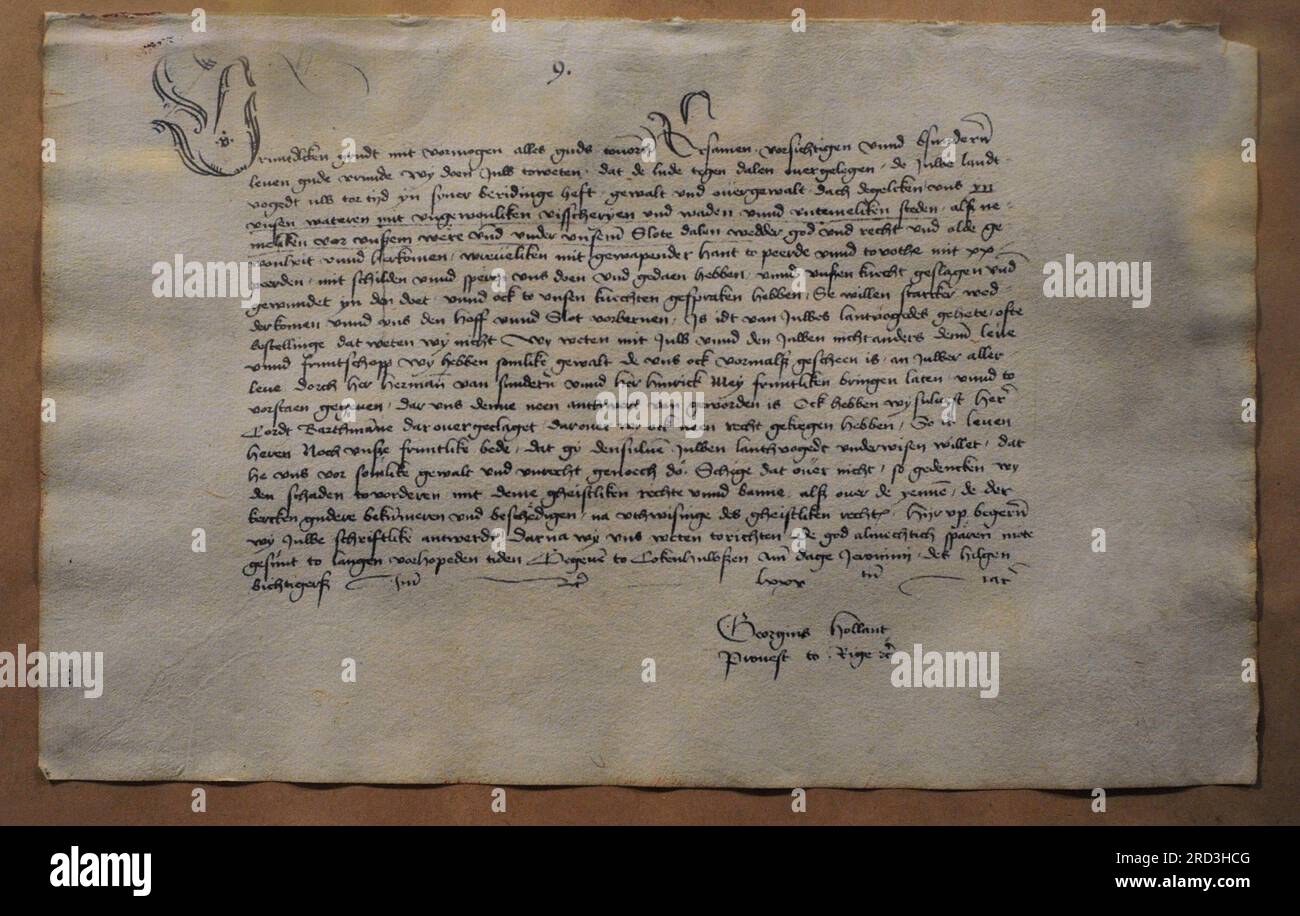 9.
Vruntliken grudt mit vormogen alles guds tovorn Ersamen vorsichtigen vnnd bsundernn
leven gude vrunde wy doen Juw toweten dat de lude tegen dalen overgelegen de Juwe landt
vogedt uth tor tyd yn syner beridinge heft gewalt und overgewalt dach degelicken vns yn
vnsen wateren mit vngewonliken visscheryen vnd waden vnnd vntemeliken steden als ne
meliken vor vnszem were vnd vnder vnsem Slote dalen wedder god vnd recht vnd olde ge
wonheit vnnd herkomen, mit gewapender hant to peerde vnnd tovothe mit xx
perden mit schilden vnnd speren vns doen vnd gedaen hebben vnnd vnszen knecht geslagen vnd
gewundet yn den doet vnnd ock to vnsen knechten gespraken hebben Se willen starcker wed
derkomen vnnd vns den Hoff vnnd Slot vorbernen Js idt van Juwes lantvogedes gehete ofte
bestellinge dat weten wy nicht Wy weten mit Juw vnnd den Juwen nicht anders denn leve
vnnd fruntschopp Wy hebben somlike gewalt de vns ock vormals gescheen is an Juwer aller
leve dorch her Herman van sundern vnnd her hinrick Mey fruntliken bringen laten vnnd to
vorstaen gegeven dar vns denne neen antwert van geworden is Ock hebben wy sulvest Hern
Cordt Barthmane darover geclaget darover wy ock neen recht gekregen hebben So is leven
heren Noch vnse fruntlike bede dat gy densulven Juwen lanthvogedt vnderwisen willet dat
he vns vor somlike gewalt vnd vnrecht genoech do Schege dat over nicht so gedencken wy
den schaden tovorderen mit deme gheistliken rechte vnnd banne als over de yennen de der
kercken gudere bekummeren vnd beschedigen na vthwisinge des gheistliken rechts Hyr vp begern
wy Juwe schriftlike antwerdt Darna wy vns weten torichten De god almechtich sparen mote
gesunt to langen vorhopeden tiden Gegeven to Cokenhuwszen Am dage Jeronimi des hilgen
bichtigers Jm lxxx tn iar
Georgius Hollant
Provest to Rige
alamy
Image ID: 2RD3HCG
www.alamy.com